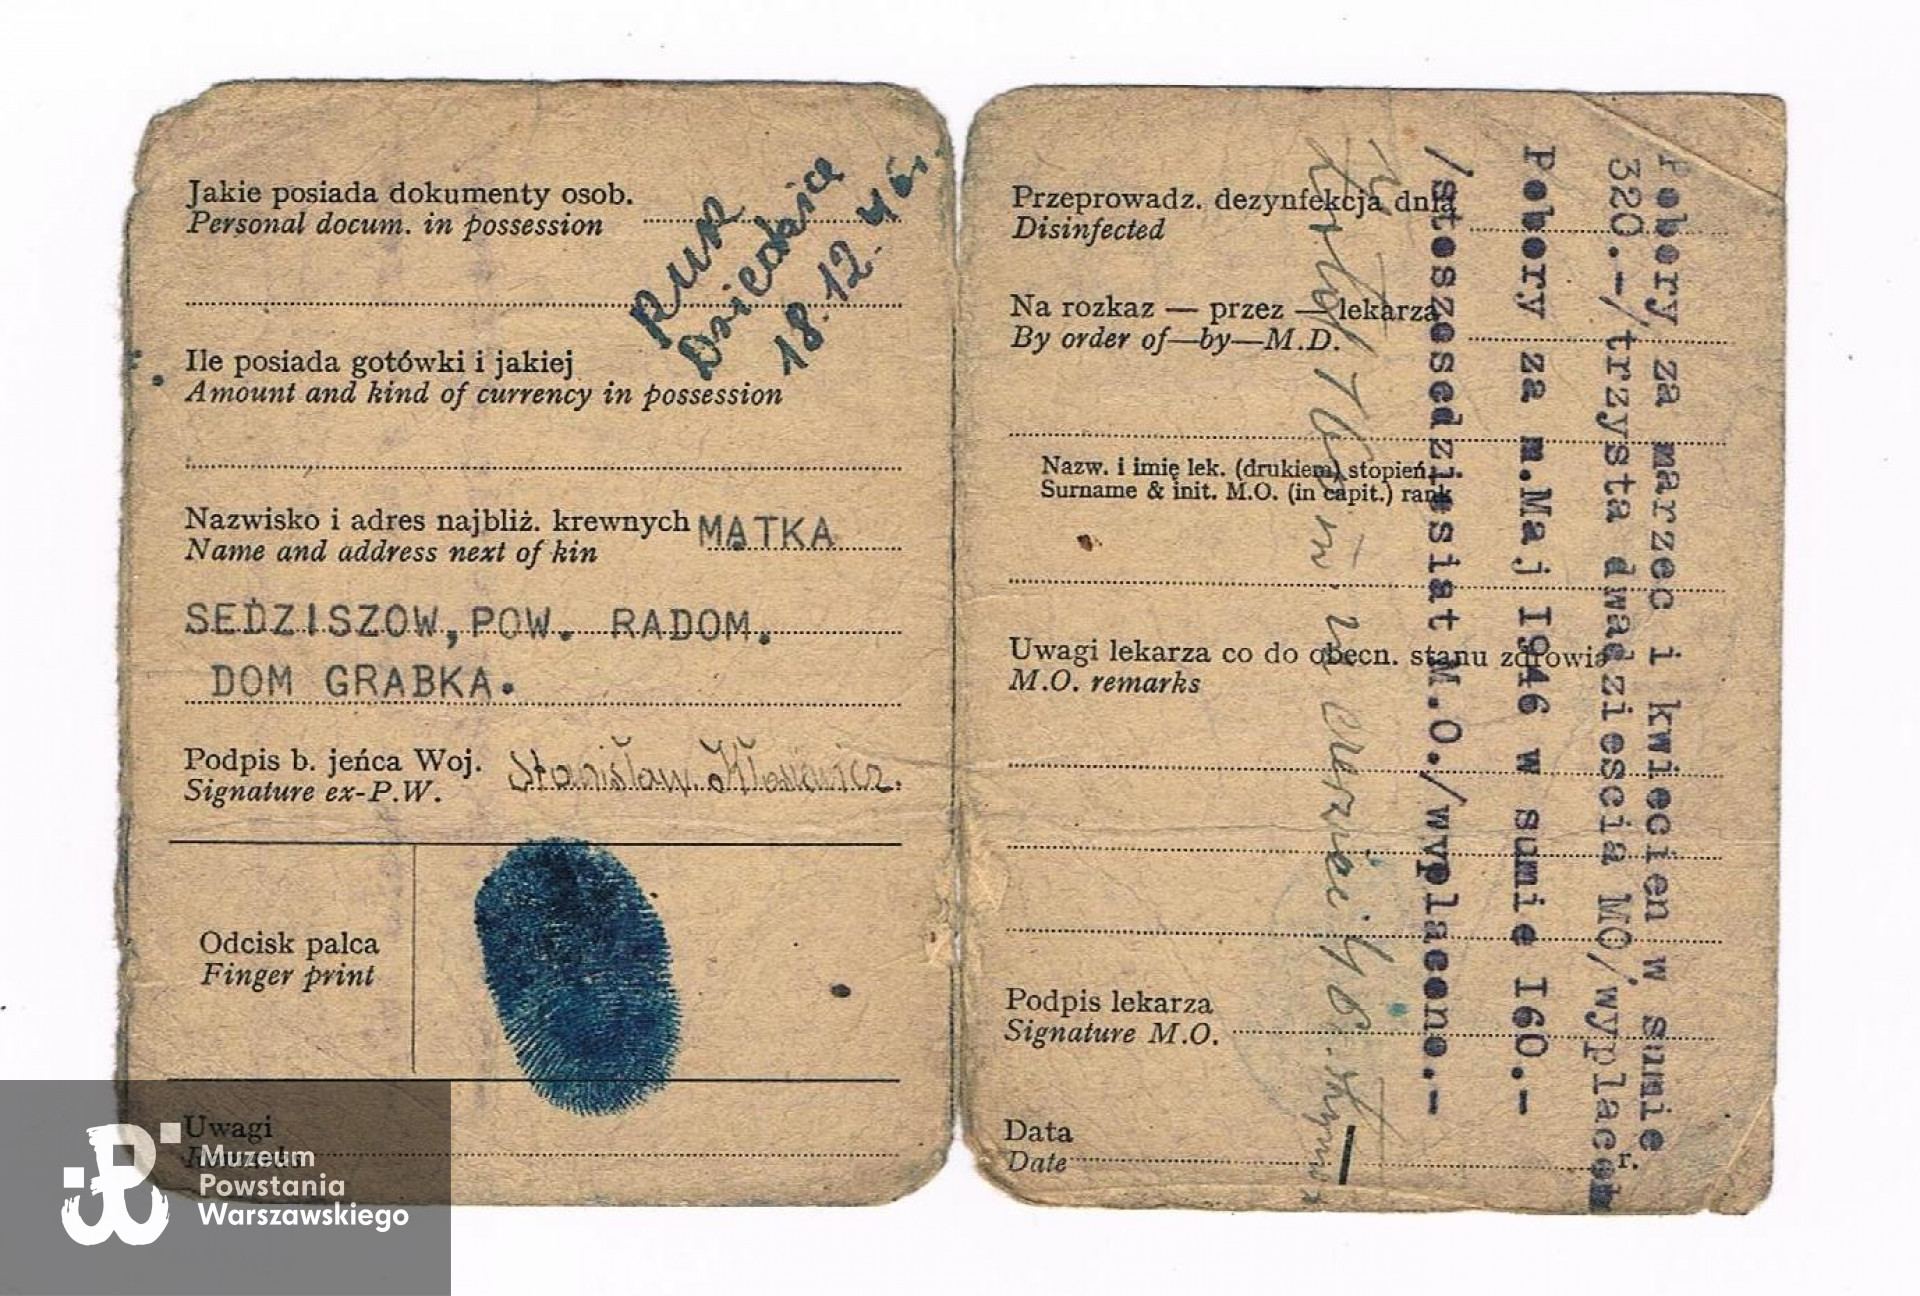 Jakie posiada dokumenty osob.
Personal docum. in possession
RUR
Dziedzice
18.12.46r.
Ile posiada gotówki i jakiej
Amount and kind of currency in possession
Nazwisko i adres najbliż. krewnych MATKA
Name and address next of kin
SEDZISZOW, POW. RADOM.
DOM GRABKA.
Podpis b. jeńca Woj. Stanisław
Signature ex-P.W.
Odcisk palca
Finger print
Uwagi
Muzeum
Powstania
Warszawskiego
Przeprowadz. dezynfekcja dnia
Disinfected
Na rozkaz — przez — lekarza
By order of—by—M.D.
Nazw. i imię lek. (drukiem) stopień
Surname & init. M.O. (in capit.) rank
Uwagi lekarza co do obecn. stanu zdrowia
M.O. remarks
Podpis lekarza
Signature M.O.
Data
Date r.
Pobory za marzec i kwiecien w sumie
320.-/trzysta dwadziescia MO/wyplacon
Pobory za m.Maj I946 w sumie I60.-
/stoszescdziesiat M.O./wyplacono.-